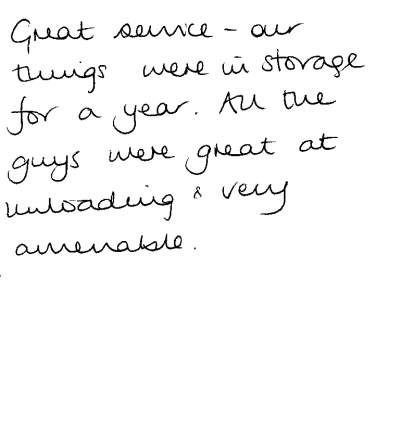 Great service - our
things were in storage
for a year. All the
guys were great at
unloading & very
amenable.